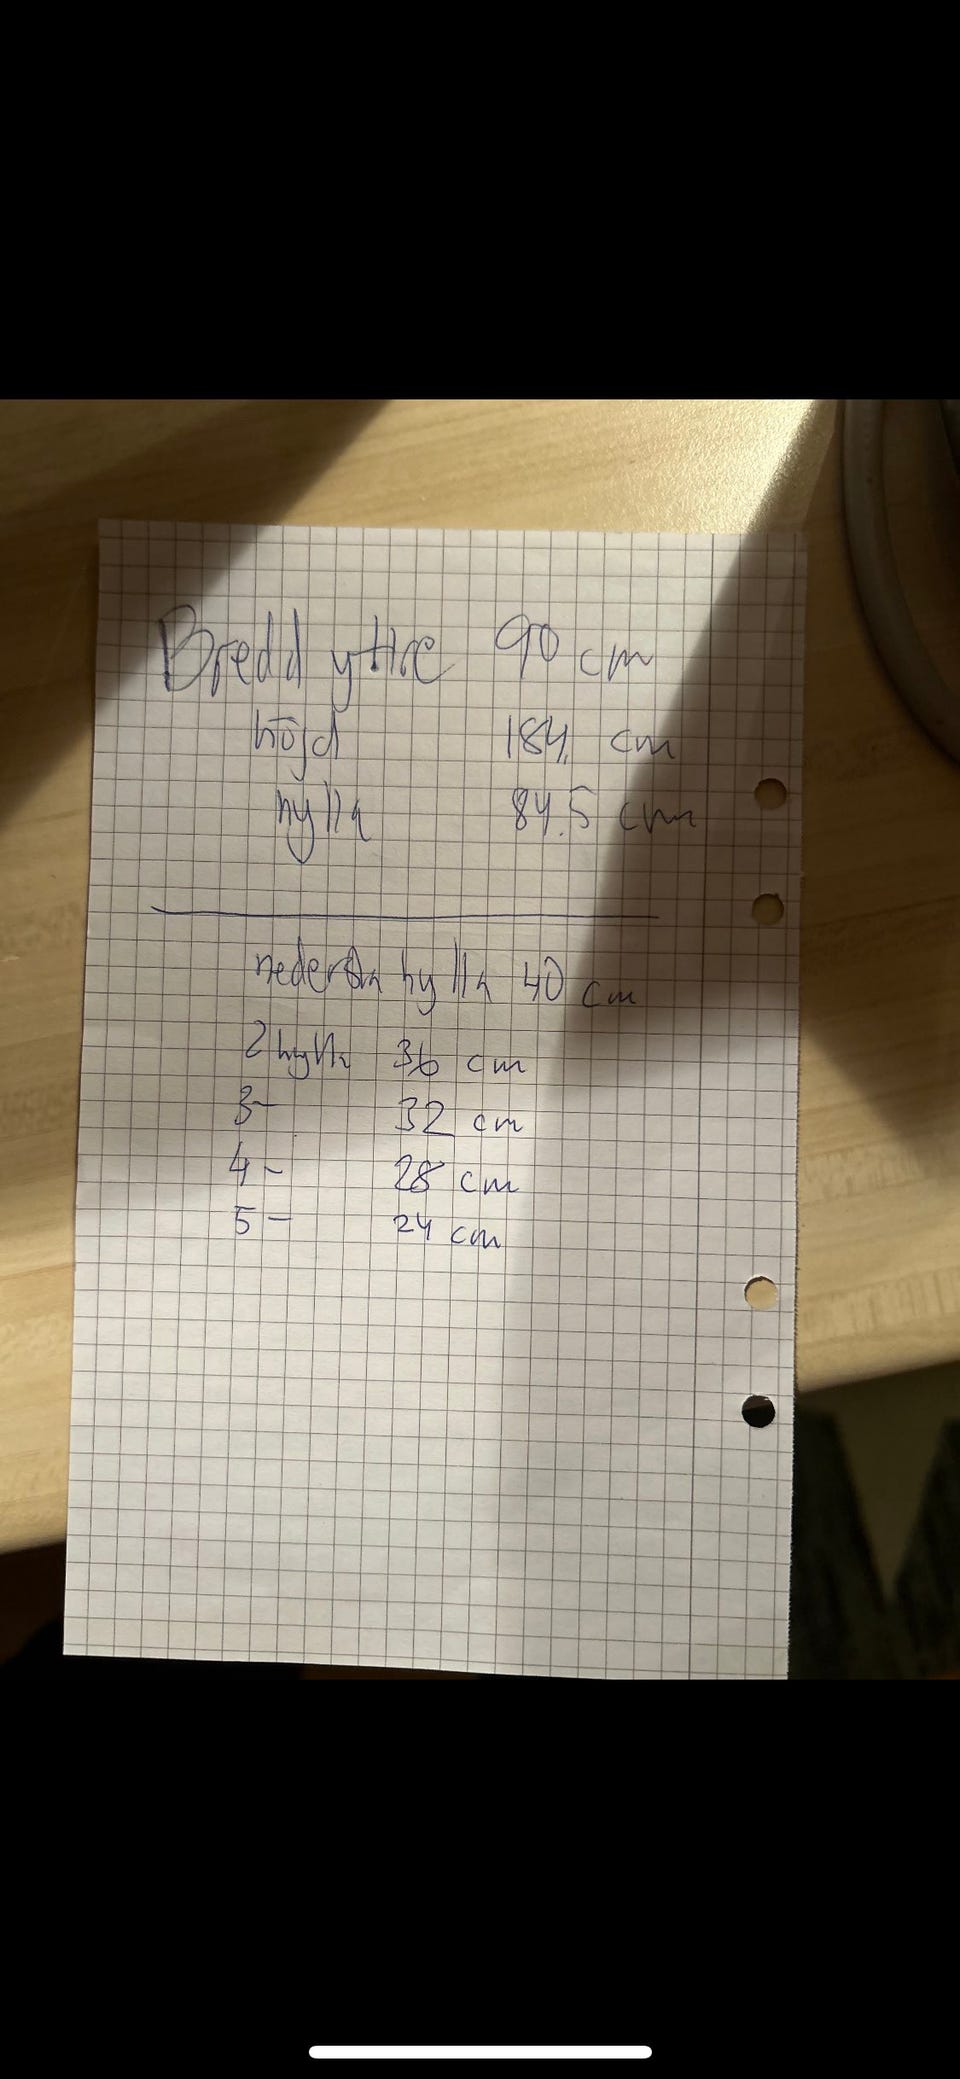 Bredd yttre 90 cm
höjd 184 cm
hylla 84.5 cm
nedersta hylla 40 cm
2 hylla 36 cm
3- 32 cm
4- 28 cm
5- 24 cm